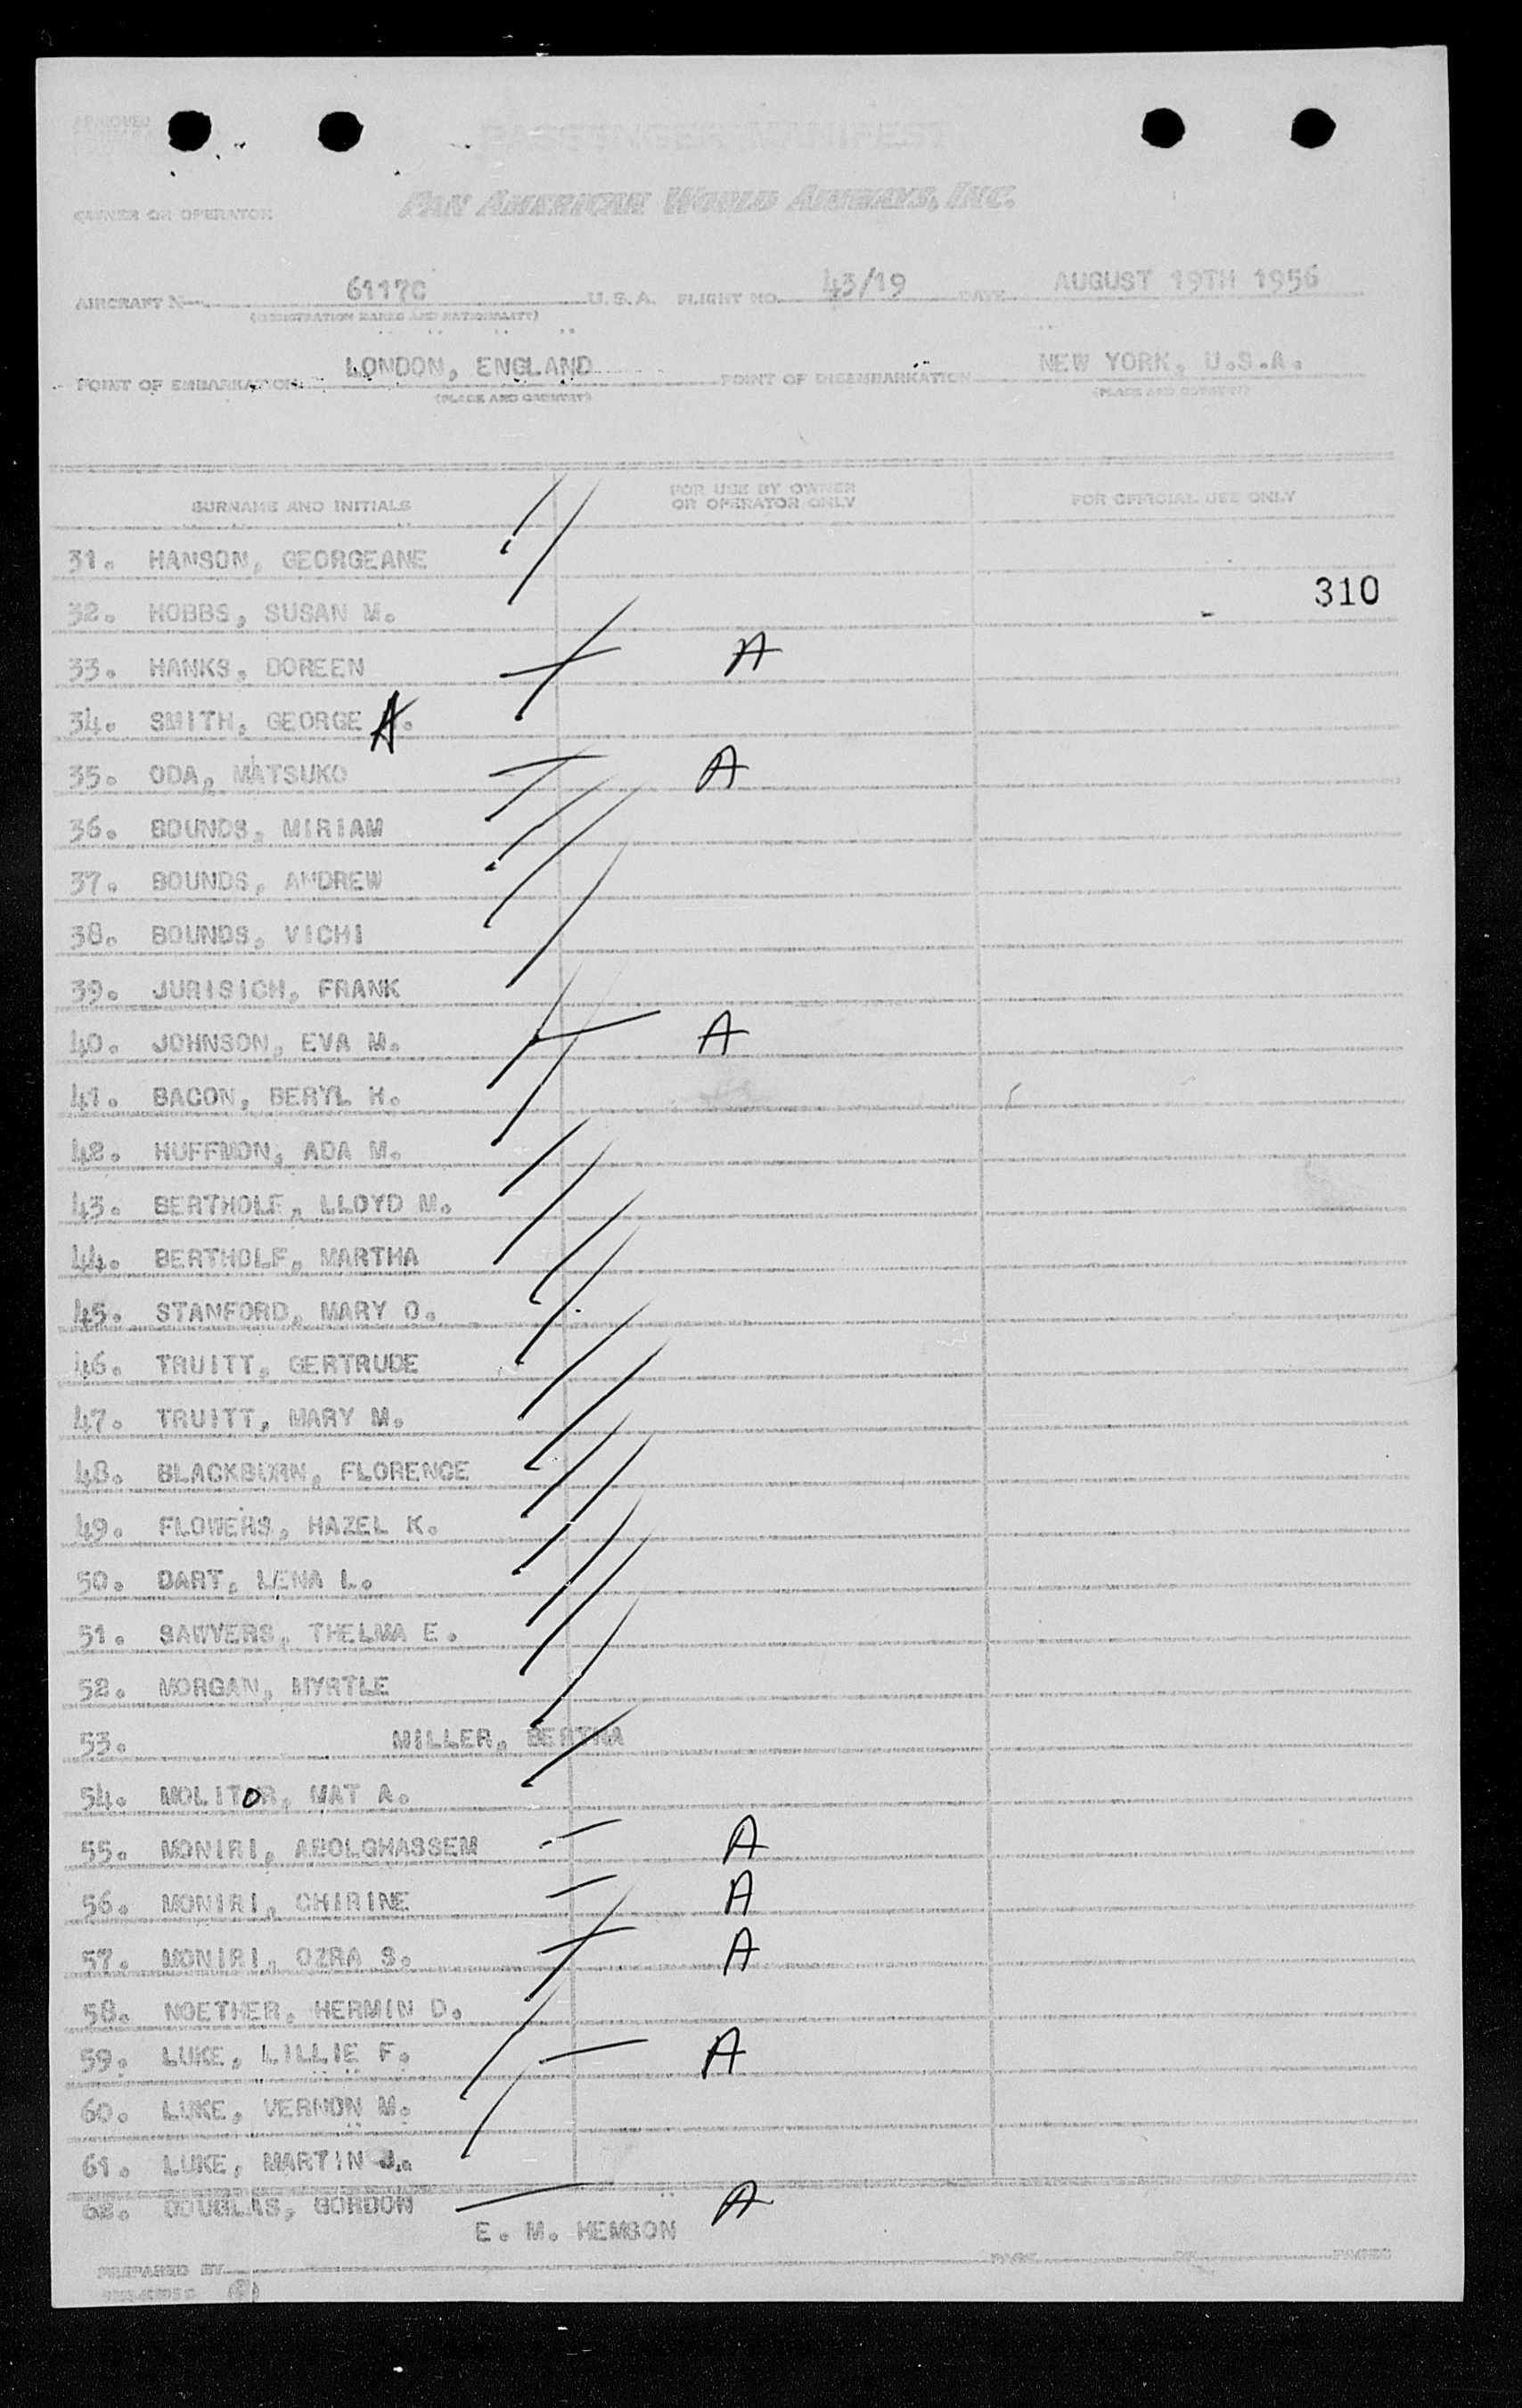 APPROVED
PASSENGER MANIFEST
OWNER OR OPERATOR PAN AMERICAN WORLD AIRWAYS, INC.
AIRCRAFT N 6117C U.S.A. FLIGHT NO. 43/19 DATE AUGUST 19TH 1956
(REGISTRATION MARKS AND NATIONALITY)
POINT OF EMBARKATION LONDON, ENGLAND POINT OF DISEMBARKATION NEW YORK, U.S.A.
(PLACE AND COUNTRY) (PLACE AND COUNTRY)
SURNAME AND INITIALS FOR USE BY OWNER OR OPERATOR ONLY FOR OFFICIAL USE ONLY
31. HANSON, GEORGEANE
310
32. HOBBS, SUSAN M.
33. HANKS, DOREEN A
34. SMITH, GEORGE A.
35. ODA, MATSUKO A
36. BOUNDS, MIRIAM
37. BOUNDS, ANDREW
38. BOUNDS, VICHI
39. JURISICH, FRANK
40. JOHNSON, EVA M. A
41. BACON, BERYL H.
42. HUFFMON, ADA M.
43. BERTHOLF, LLOYD M.
44. BERTHOLF, MARTHA
45. STANFORD, MARY O.
46. TRUITT, GERTRUDE
47. TRUITT, MARY M.
48. BLACKBURN, FLORENCE
49. FLOWERS, HAZEL K.
50. DART, LENA L.
51. SAWYERS, THELMA E.
52. MORGAN, MYRTLE
53. MILLER, BERTHA
54. MOLITOR, MAT A.
55. MONIRI, ABOLGHASSEM A
56. MONIRI, CHIRINE A
57. MONIRI, OZRA S. A
58. NOETHER, HERMIN D.
59. LUKE, LILLIE F. A
60. LUKE, VERNON M.
61. LUKE, MARTIN J.
62. DOUGLAS, GORDON A
E. M. HEMSON
PREPARED BY PAGE OF PAGES